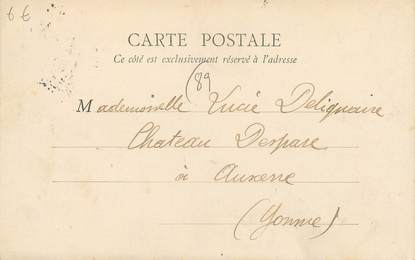 66
CARTE POSTALE
Ce côté est exclusivement réservé à l'adresse
(89
Mademoiselle Lucie Deliguaire
Chateau Despare
à Auxerre
(Yonne)